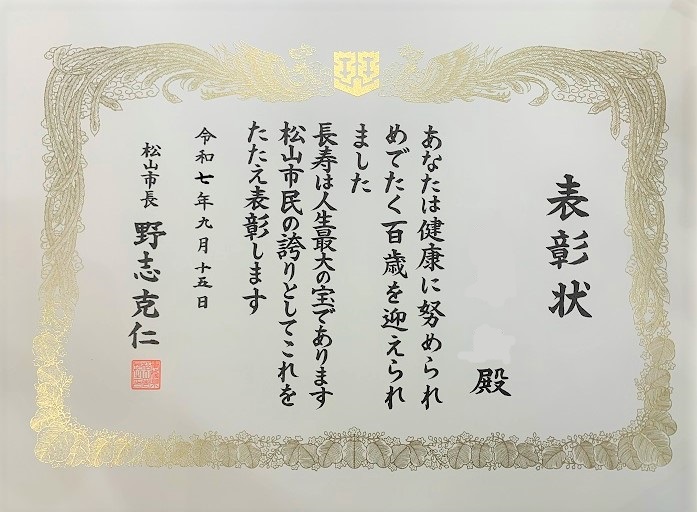 表彰状
殿
あなたは健康に努められ
めでたく百歳を迎えられ
ました
長寿は人生最大の宝であります
松山市民の誇りとしてこれを
たたえ表彰します
令和七年九月十五日
松山市長 野志克仁